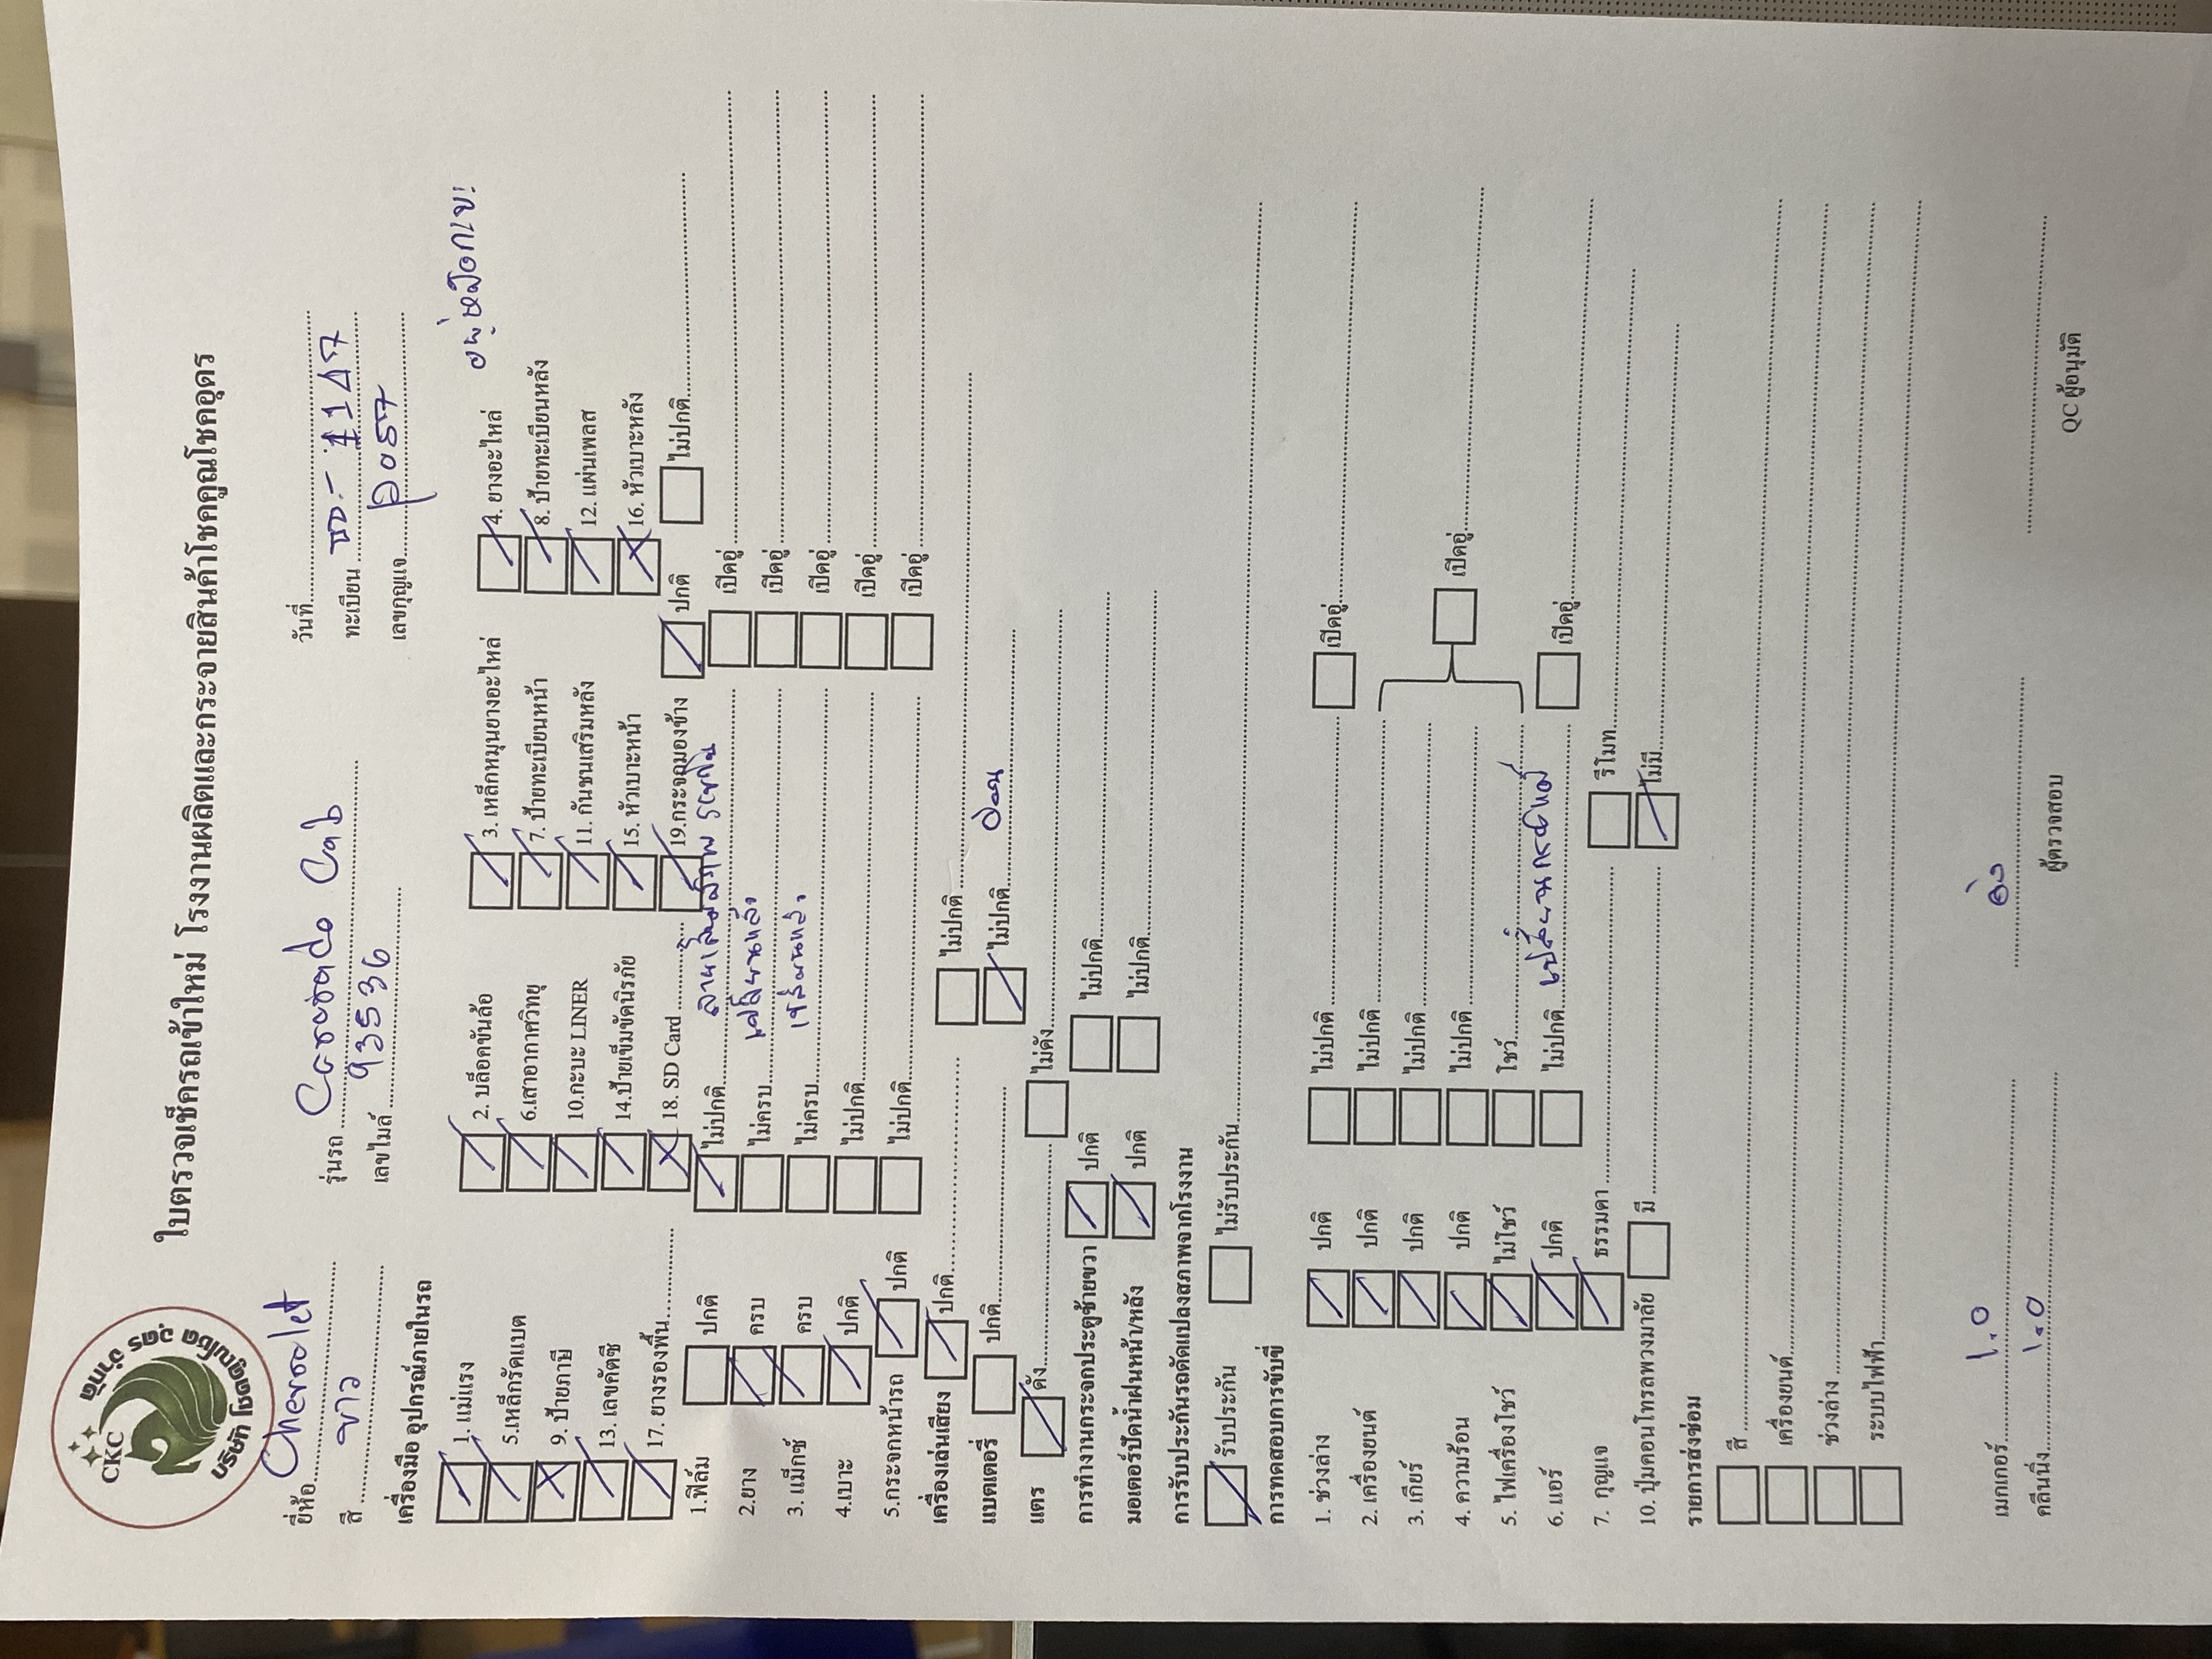 CKC
บริษัท โชคคูณโชค อุดร จำกัด
ใบตรวจเช็ครถเข้าใหม่ โรงงานผลิตและกระจายสินค้าโชคคูณโชคอุดร
วันที่
ยี่ห้อ Chevrolet รุ่นรถ Corolado Cab ทะเบียน
สี ขาว เลขไมล์ 93536 เลขกุญแจ P057
เครื่องมือ อุปกรณ์ภายในรถ
1. แม่แรง 2. บล็อคขันล้อ 3. เหล็กหมุนยางอะไหล่ 4. ยางอะไหล่
5.เหล็กรัดแบต 6.เสาอากาศวิทยุ 7. ป้ายทะเบียนหน้า 8. ป้ายทะเบียนหลัง
9. ป้ายภาษี 10.กะบะ LINER 11. กันชนเสริมหลัง 12. แผ่นเพลส
13. เลขคัตซี 14.ป้ายเข็มขัดนิรภัย 15. หัวเบาะหน้า 16. หัวเบาะหลัง
17. ยางรองพื้น 18. SD Card 19.กระจกมองข้าง ปกติ ไม่ปกติ
1.ฟิล์ม ปกติ ไม่ปกติ เปิดอู่
2.ยาง ครบ ไม่ครบ เปิดอู่
3. แม็กซ์ ครบ ไม่ครบ เปิดอู่
4.เบาะ ปกติ ไม่ปกติ เปิดอู่
5.กระจกหน้ารถ ปกติ ไม่ปกติ เปิดอู่
เครื่องเล่นเสียง ปกติ ไม่ปกติ
แบตเตอรี่ ปกติ ไม่ปกติ อ่อน
แตร ดัง ไม่ดัง
การทำงานกระจกประตูซ้ายขวา ปกติ ไม่ปกติ
มอเตอร์ปัดน้ำฝนหน้า/หลัง ปกติ ไม่ปกติ
การรับประกันรถดัดแปลงสภาพจากโรงงาน
รับประกัน ไม่รับประกัน
การทดสอบการขับขี่
1. ช่วงล่าง ปกติ ไม่ปกติ เปิดอู่
2. เครื่องยนต์ ปกติ ไม่ปกติ
3. เกียร์ ปกติ ไม่ปกติ เปิดอู่
4. ความร้อน ปกติ ไม่ปกติ
5. ไฟเครื่องโชว์ ไม่โชว์ โชว์
6. แอร์ ปกติ ไม่ปกติ เปิดอู่
7. กุญแจ ธรรมดา รีโมท
10. ปุ่มคอนโทรลพวงมาลัย มี ไม่มี
รายการส่งซ่อม
สี
เครื่องยนต์
ช่วงล่าง
ระบบไฟฟ้า
เมกเกอร์ 1.0
คลีนนิ่ง 1.0
ผู้ตรวจสอบ QC ผู้อนุมัติ